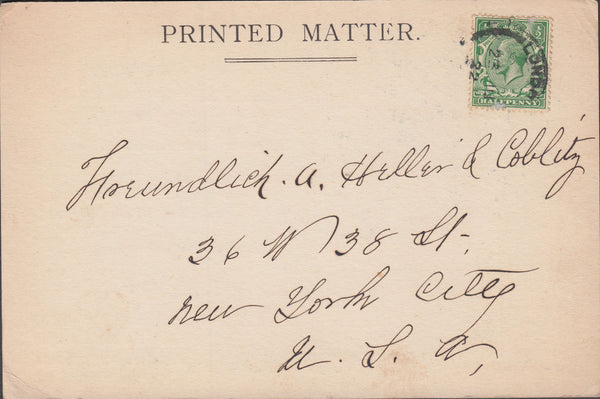 PRINTED MATTER.
LONDON
22
HALFPENNY
Freundlich. A. Heller & Coblitz
36 W 38 St.
New York City
U. S. A,